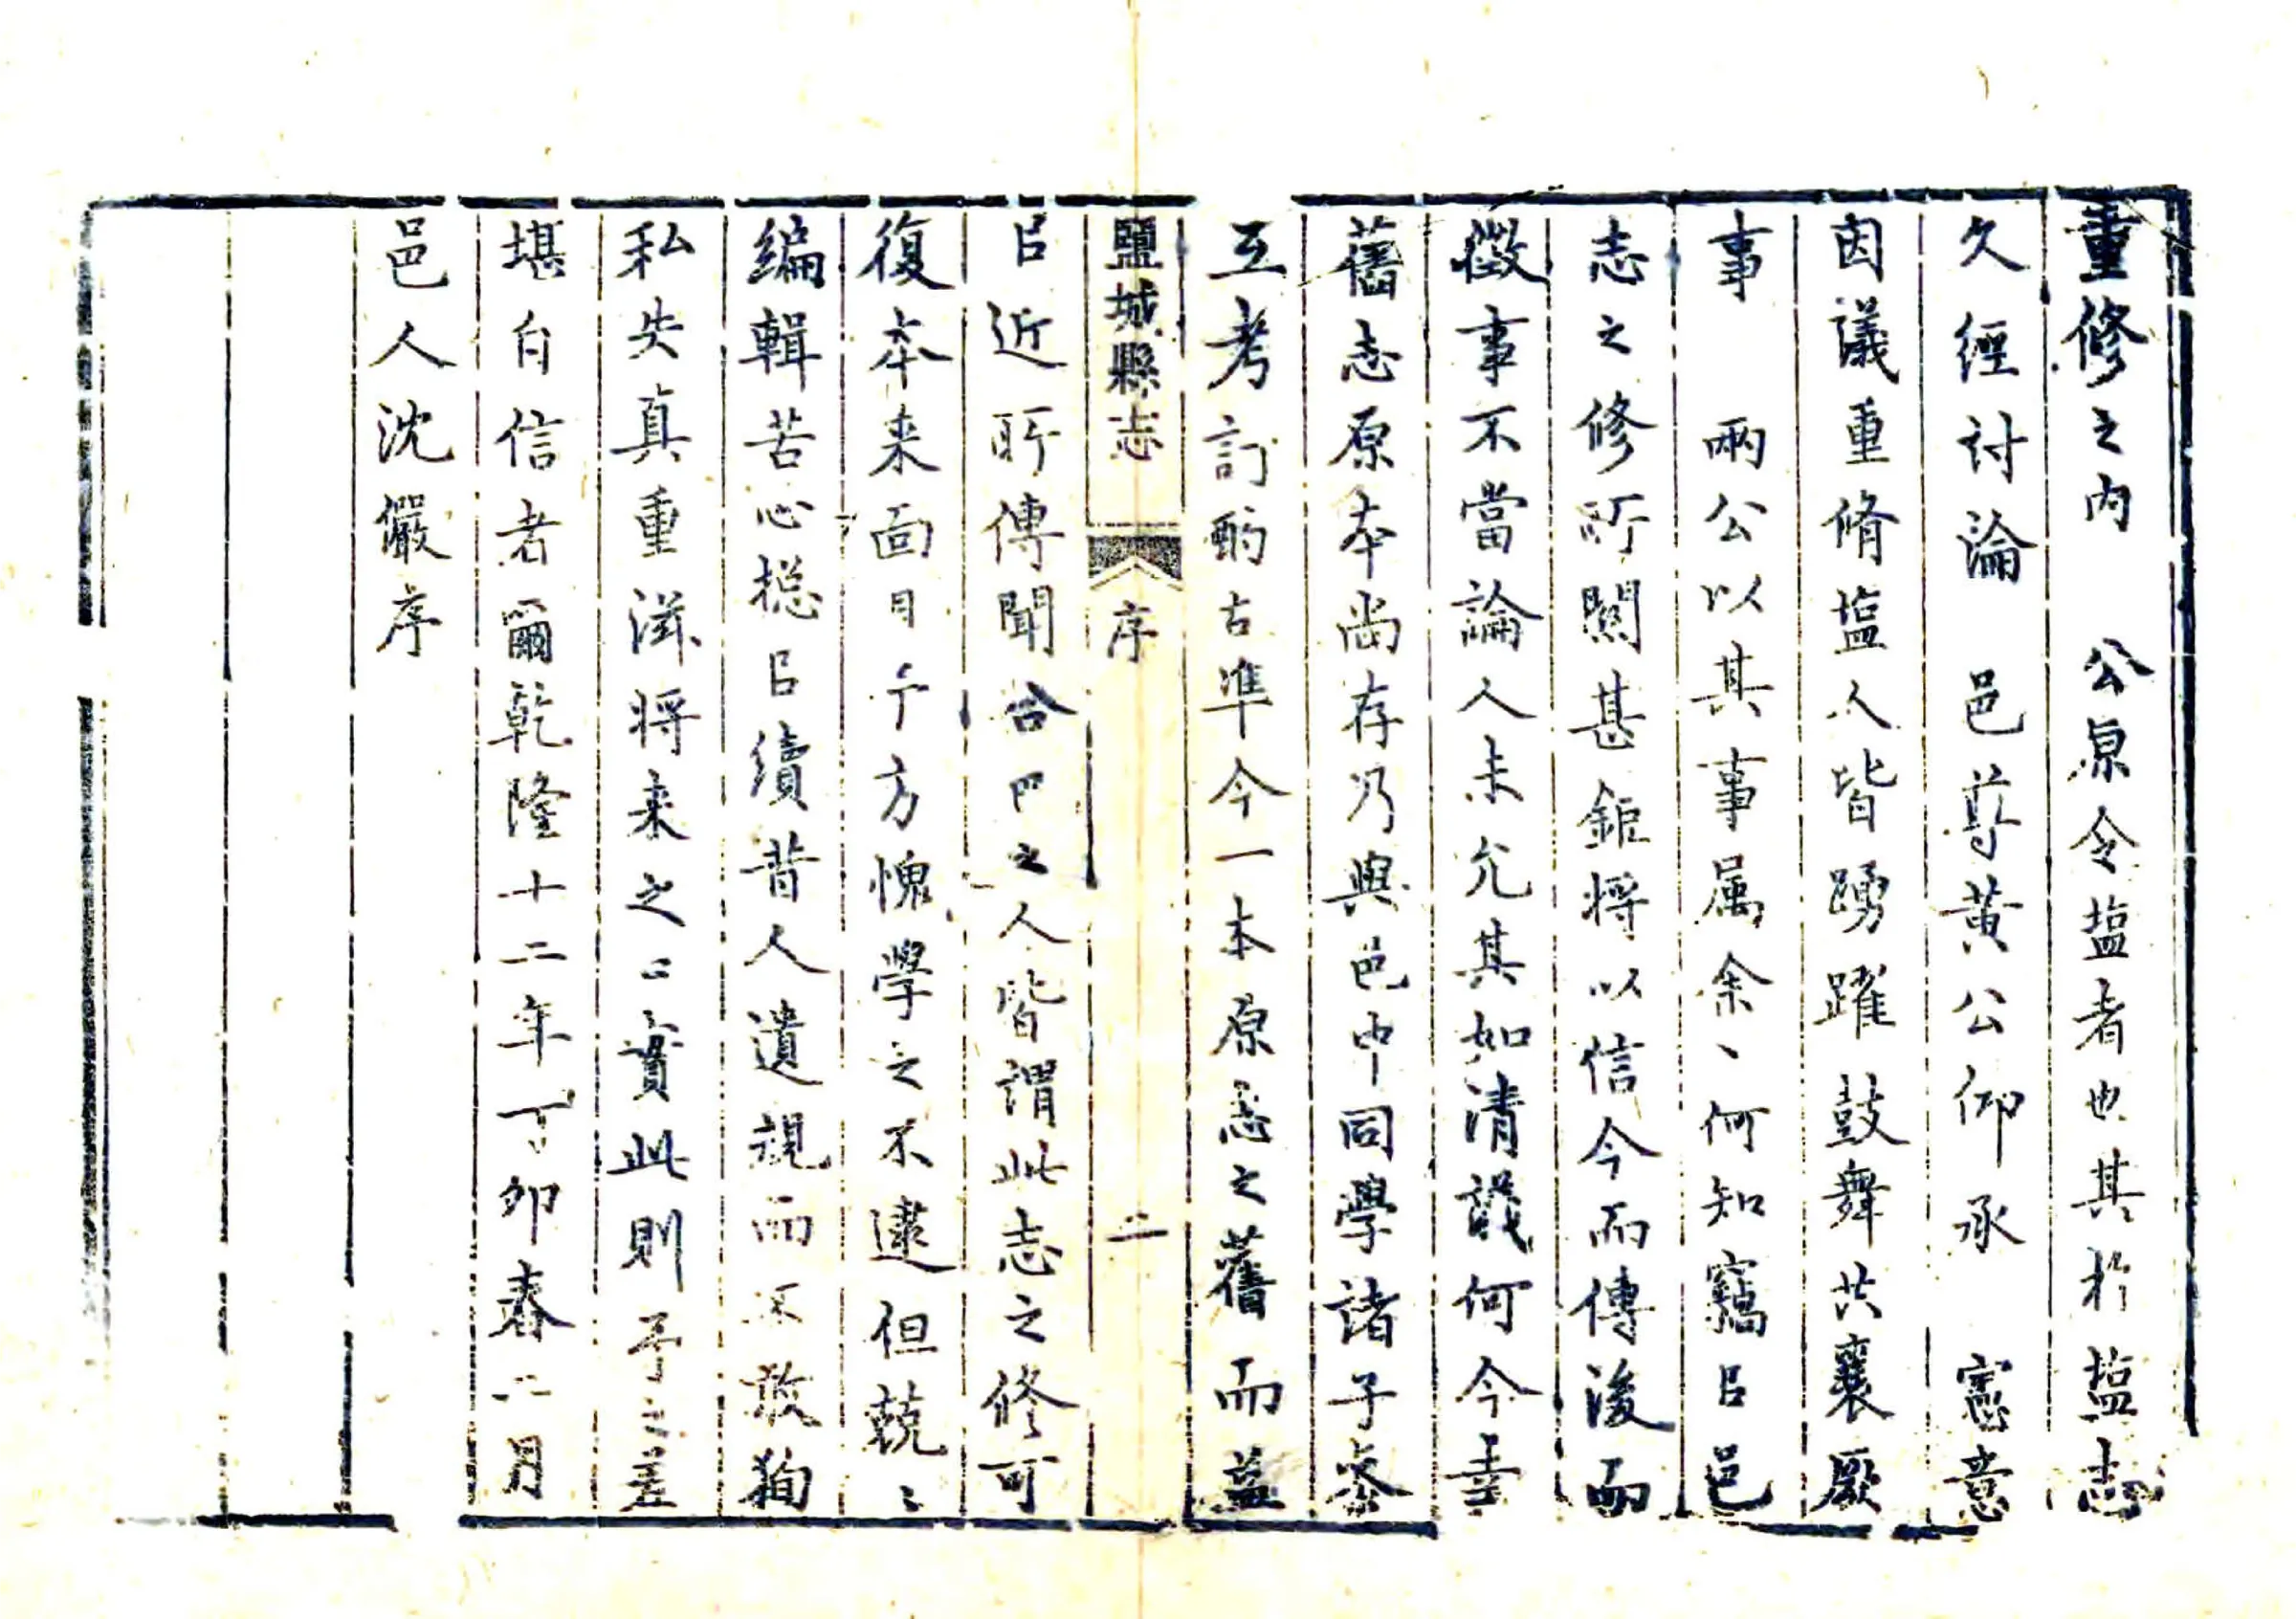 重修之內　公原令塩者也其於塩志
久經討論　邑尊黃公仰承　憲意
因議重脩塩人皆踴躍鼓舞共襄厥
事　兩公以其事属余丶何知竊㠯邑
志之修所關甚鉅將以信今而傳後而
徵事不當論人未允其如清議何今幸
舊志原本尚存乃與邑中同學諸子叅
互考訂酌古準今一本原志之舊而益
鹽城縣志　序　二
㠯近所傳聞合四之人皆謂此志之修可
復本来面目予方愧學之不逮但兢〻
編輯苦心緫㠯續昔人遺規而不敢狥
私失真重滋将来之口實此則予之差
堪自信者爾乾隆十二年丁卯春二月
邑人沈儼序